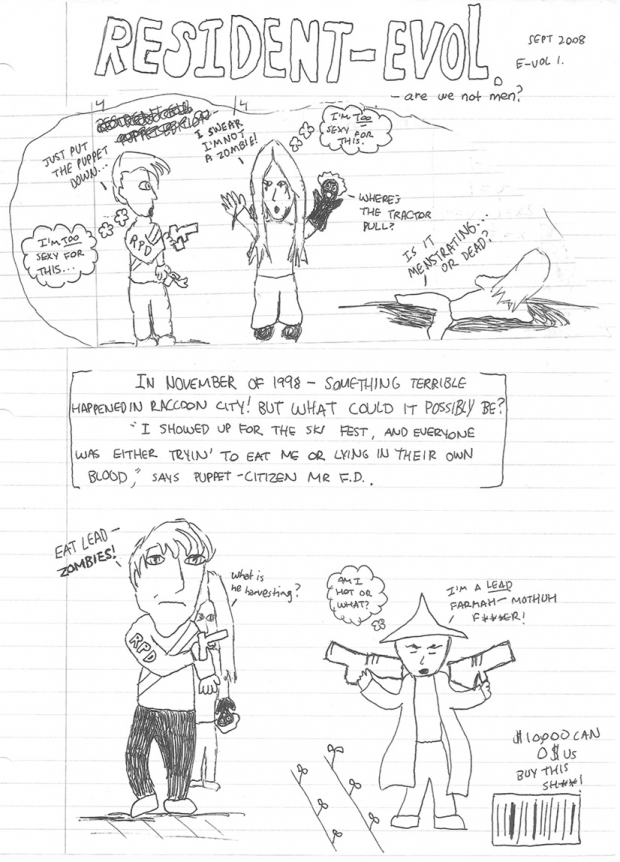 RESIDENT-EVOL.
SEPT 2008
E-VOL 1.
- are we not men?
JUST PUT
THE PUPPET
DOWN...
I SWEAR
I'M NOT
A ZOMBIE!
I'M TOO
SEXY FOR
THIS.
I'M TOO
SEXY FOR
THIS...
RPD
- WHERE'S
THE TRACTOR
PULL?
IS IT
MENSTRATING...
OR DEAD?
IN NOVEMBER OF 1998 - SOMETHING TERRIBLE
HAPPENED IN RACCOON CITY! BUT WHAT COULD IT POSSIBLY BE?
"I SHOWED UP FOR THE SKI FEST, AND EVERYONE
WAS EITHER TRYIN' TO EAT ME OR LYING IN THEIR OWN
BLOOD," SAYS PUPPET-CITIZEN MR F.D..
EAT LEAD -
ZOMBIES!
What is
he harvesting?
RPD
AM I
HOT OR
WHAT?
I'M A LEAD
FARMAH - MOTHUH
F***ER!
$10,000 CAN
0$ US
BUY THIS
SH**!